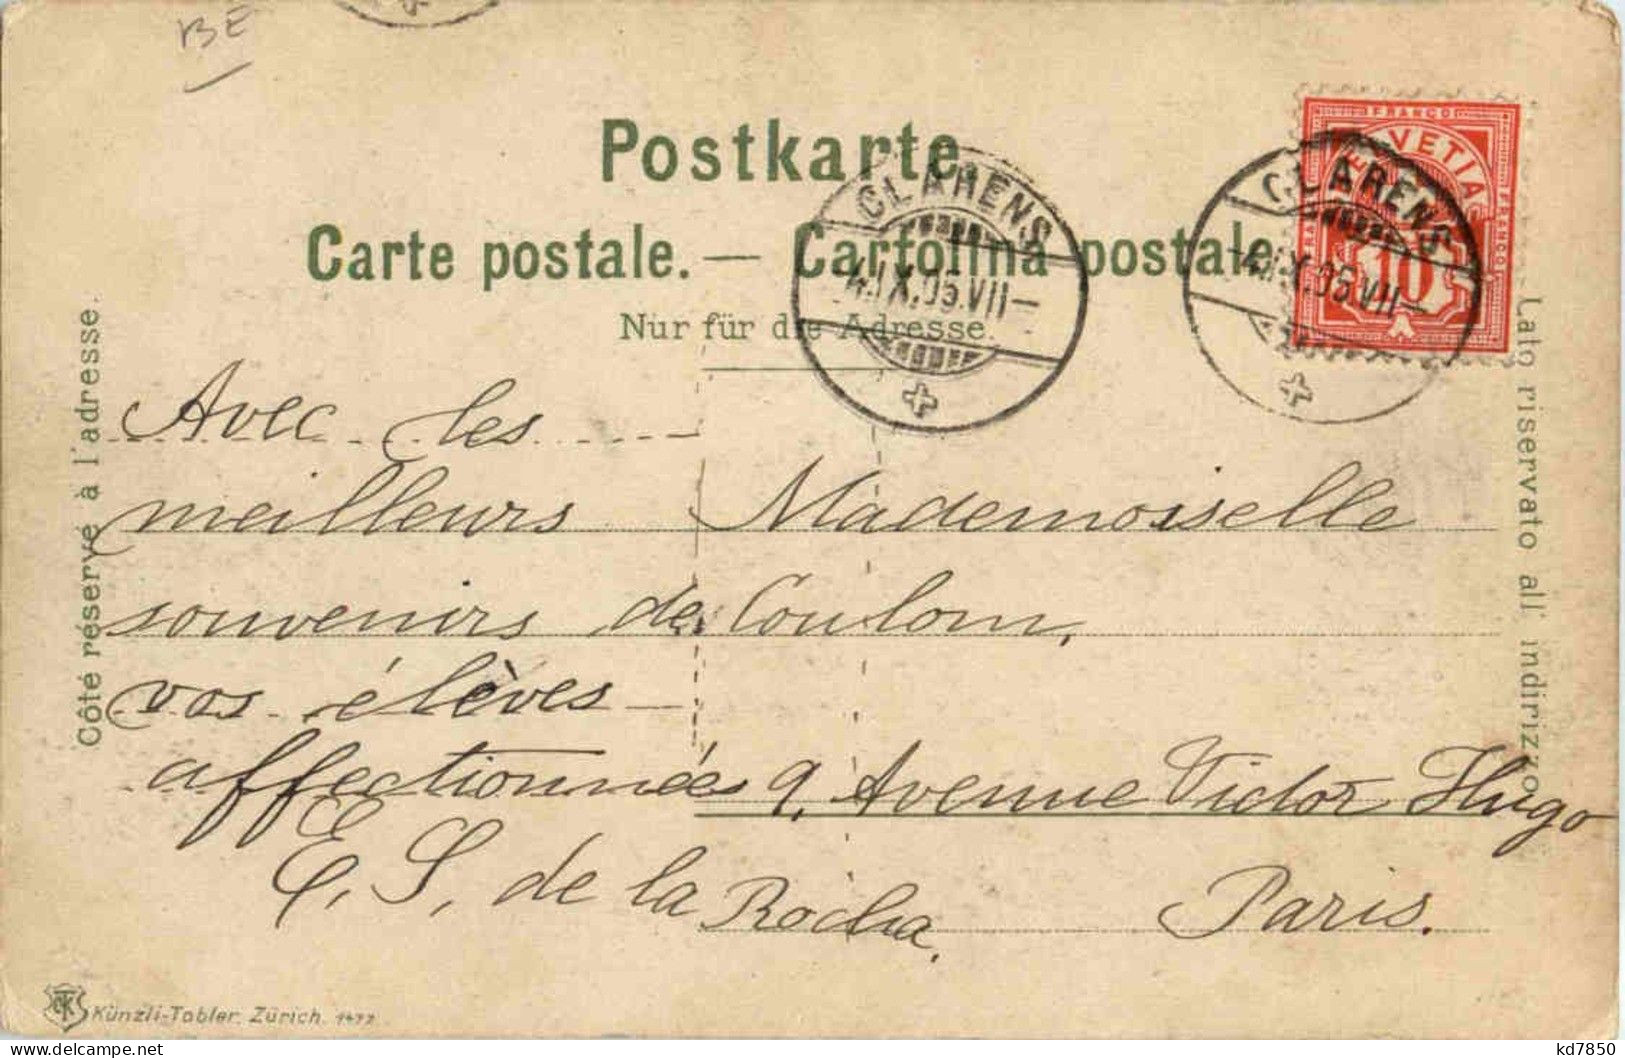 BE
Postkarte
Carte postale. — Cartolina postale.
Nur für die Adresse.
CLARENS
-4.IX.05.VII-
CLARENS
-4.IX.05.VII-
FRANCO
HELVETIA
FRANCO
10
Côté réservé à l'adresse.
Lato riservato all' indirizzo.
Avec les
meilleurs
souvenirs de
vos élèves
affectionnées
E, S, de la Rocha,
Mademoiselle
Coulom,
9, Avenue Victor Hugo
Paris.
Künzli-Tobler, Zürich. 1477
kd7850